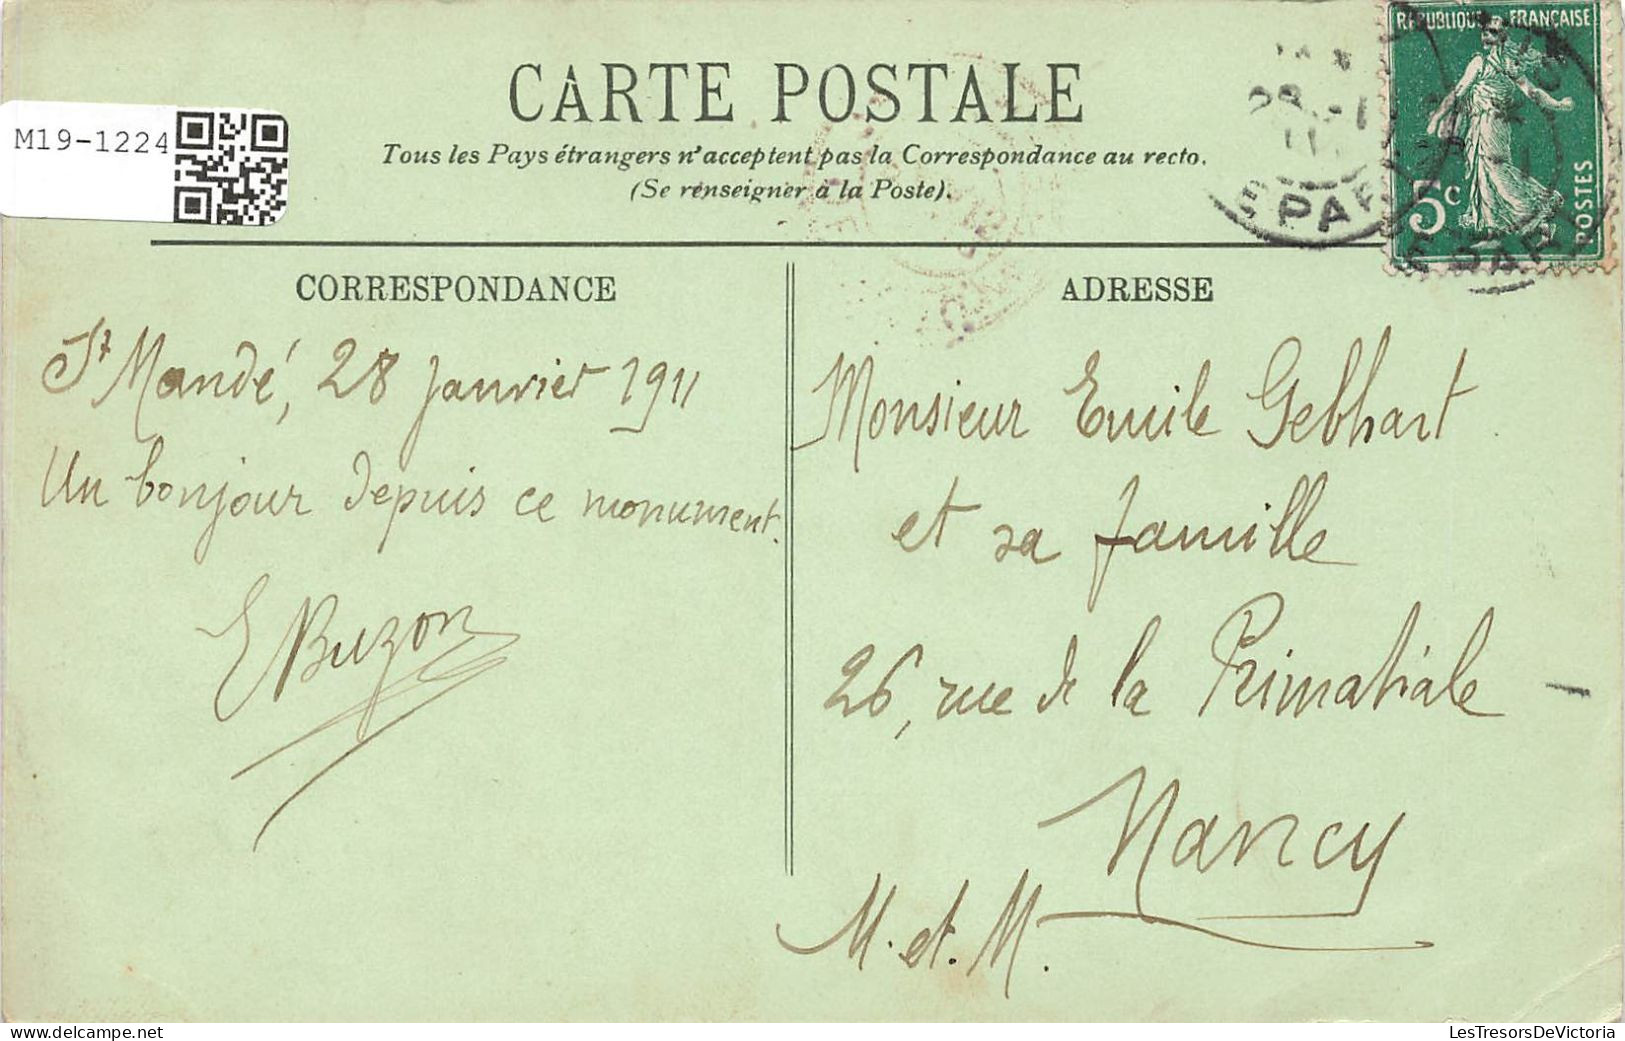 RÉPUBLIQUE FRANÇAISE
5c
POSTES
PARIS
M19-1224
CARTE POSTALE
Tous les Pays étrangers n'acceptent pas la Correspondance au recto.
(Se renseigner à la Poste).
CORRESPONDANCE
St Mandé, 28 Janvier 1911
Un bonjour depuis ce monument.
E Buzon
ADRESSE
Monsieur Emile Gebhart
et sa famille
26, rue de la Primatiale
Nancy
M. et. M.
www.delcampe.net
LesTresorsDeVictoria